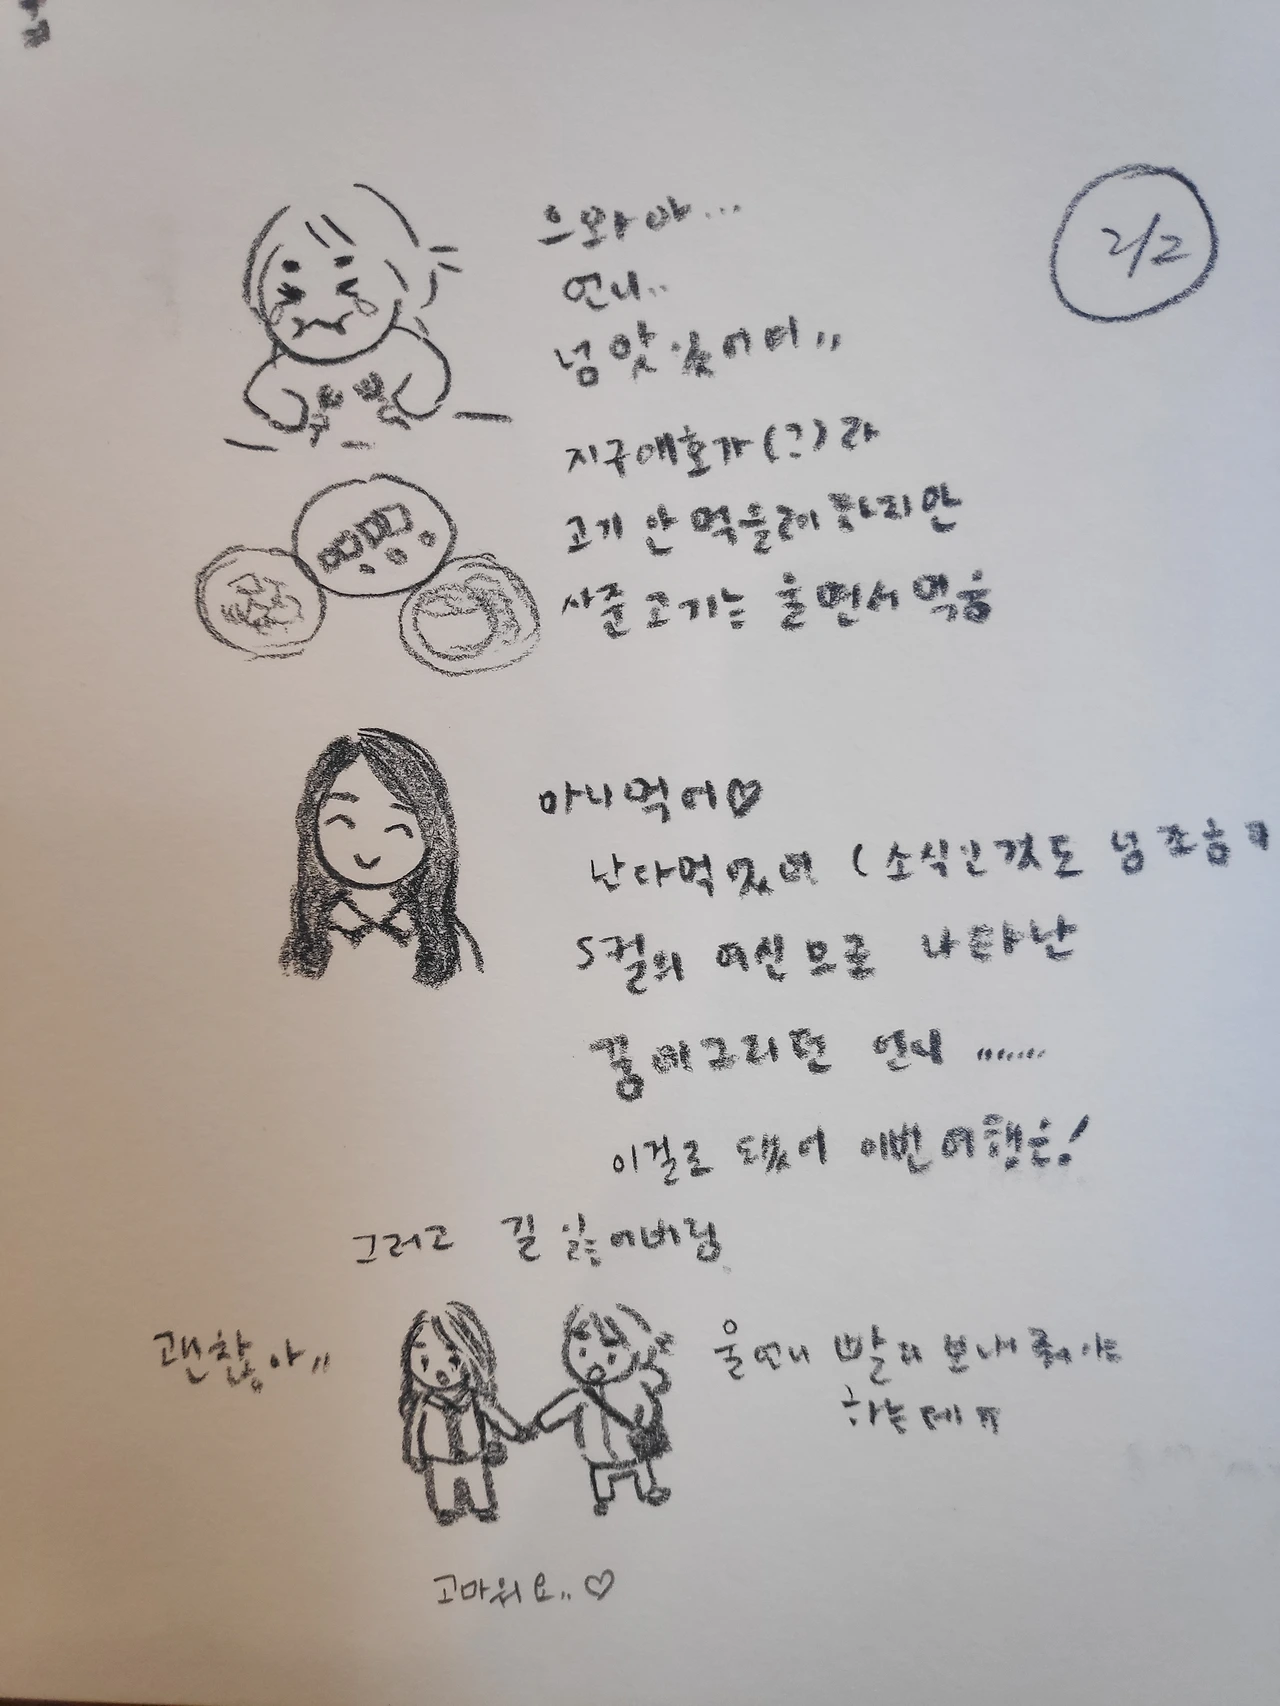 으와아...
2/2
언니..
넘 맛있어여,,
지구애호가(?)라
고기 안 먹을래 하지만
사준고기는 울면서 먹음
아니 먹어♡
난 다 먹었어 (소식인것도 넘 조흠
S컬의 여신으로 나타난
꿈에 그리던 언니 .......
이걸로 됐어 이번 여행은!
그러고 길 잃어버림
괜찮아,,
울언니 빨리 보내줘야
하는데 ㅠ
고마워요,,♡